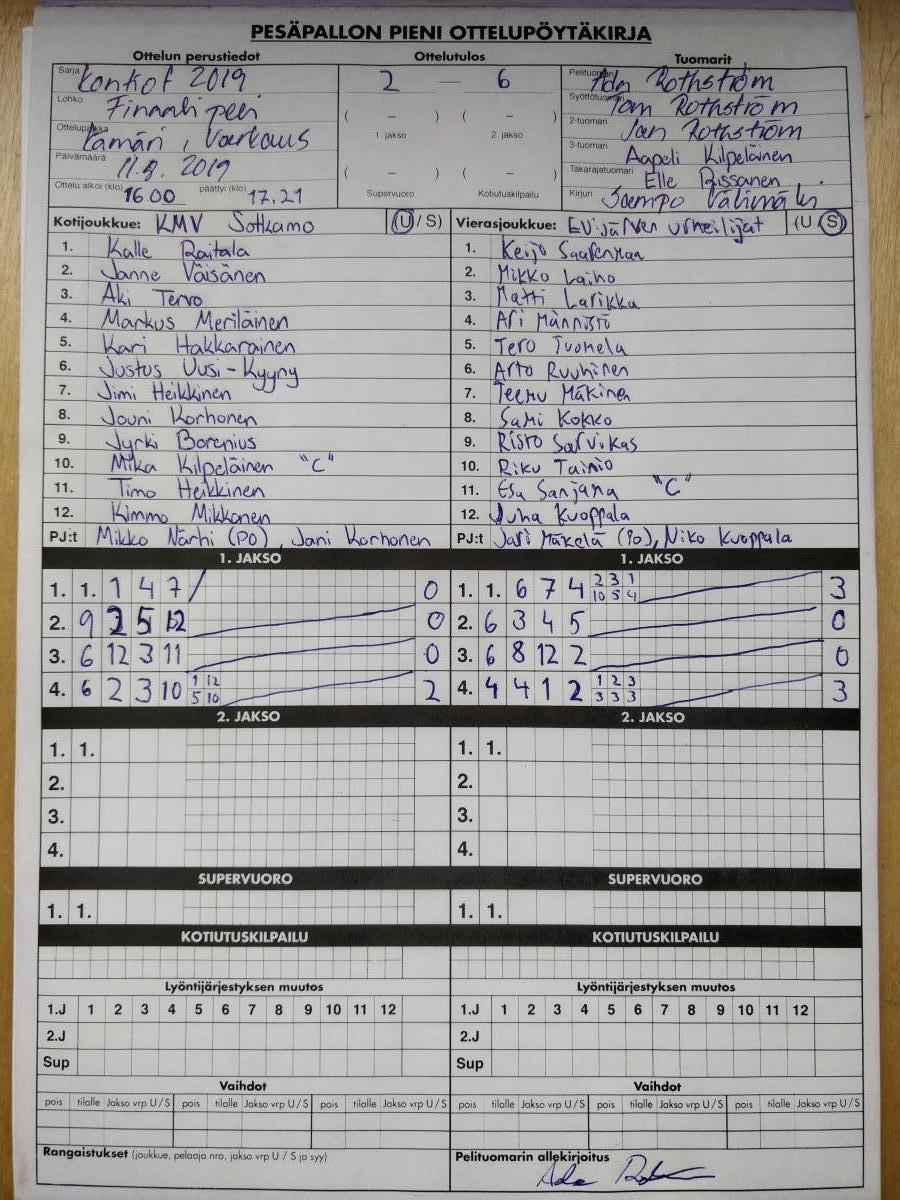 PESÄPALLON PIENI OTTELUPÖYTÄKIRJA
Ottelun perustiedot Ottelutulos Tuomarit
Sarja Konkof 2019 2 — 6 Pelituomari Ada Rothström
Lohko Finaali peli ( – ) ( – ) Syöttötuomari Tom Rothström
1. jakso 2. jakso 2-tuomari Jan Rothström
Ottelupaikka Lämäri, Varkaus 3-tuomari Aapeli Kilpeläinen
Päivämäärä 11.8.2019 ( – ) ( – ) Takarajatuomari Elle Rissanen
Ottelu alkoi (klo) 16.00 päättyi (klo) 17.21 Supervuoro Kotiutuskilpailu Kirjuri Välimäki
Kotijoukkue: KMV Sotkamo (U / S) Vierasjoukkue: Evijärven urheilijat (U / S)
1. Kalle Raitala 1. Keijo Saarenmaa
2. Janne Väisänen 2. Mikko Laiho
3. Aki Tervo 3. Matti Larikka
4. Markus Meriläinen 4. Ari Männistö
5. Kari Hakkarainen 5. Tero Tuomela
6. Justus Uusi-Kyyny 6. Arto Ruuhinen
7. Jimi Heikkinen 7. Teemu Mäkinen
8. Jouni Korhonen 8. Sami Kokko
9. Jyrki Borenius 9. Risto Sarvikas
10. Mika Kilpeläinen "C" 10. Riku Tainio
11. Timo Heikkinen 11. Esa Sanjana "C"
12. Kimmo Mikkonen 12. Juha Kuoppala
PJ:t Mikko Närhi (PO), Jani Korhonen PJ:t Jari Mäkelä (PO), Niko Kuoppala
1. JAKSO 1. JAKSO
1. 1. 1 4 7 / 0 1. 1. 6 7 4 2 3 1 10 5 4 3
2. 9 2 5 12 0 2. 6 3 4 5 0
3. 6 12 3 11 0 3. 6 8 12 2 0
4. 6 2 3 10 1 12 5 10 2 4. 4 4 1 2 1 2 3 3 3 3 3
2. JAKSO 2. JAKSO
1. 1. 1. 1.
2. 2.
3. 3.
4. 4.
SUPERVUORO SUPERVUORO
1. 1. 1. 1.
KOTIUTUSKILPAILU KOTIUTUSKILPAILU
Lyöntijärjestyksen muutos Lyöntijärjestyksen muutos
1.J 1 2 3 4 5 6 7 8 9 10 11 12 1.J 1 2 3 4 5 6 7 8 9 10 11 12
2.J 2.J
Sup Sup
Vaihdot Vaihdot
pois tilalle Jakso vrp U / S pois tilalle Jakso vrp U / S pois tilalle Jakso vrp U / S pois tilalle Jakso vrp U / S pois tilalle Jakso vrp U / S pois tilalle Jakso vrp U / S
Rangaistukset (joukkue, pelaaja nro, jakso vrp U / S ja syy) Pelituomarin allekirjoitus